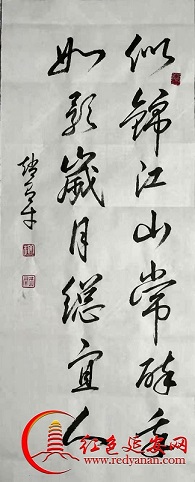 似锦江山常醉我
如歌歲月總宜人
红色延安网
www.redyanan.com